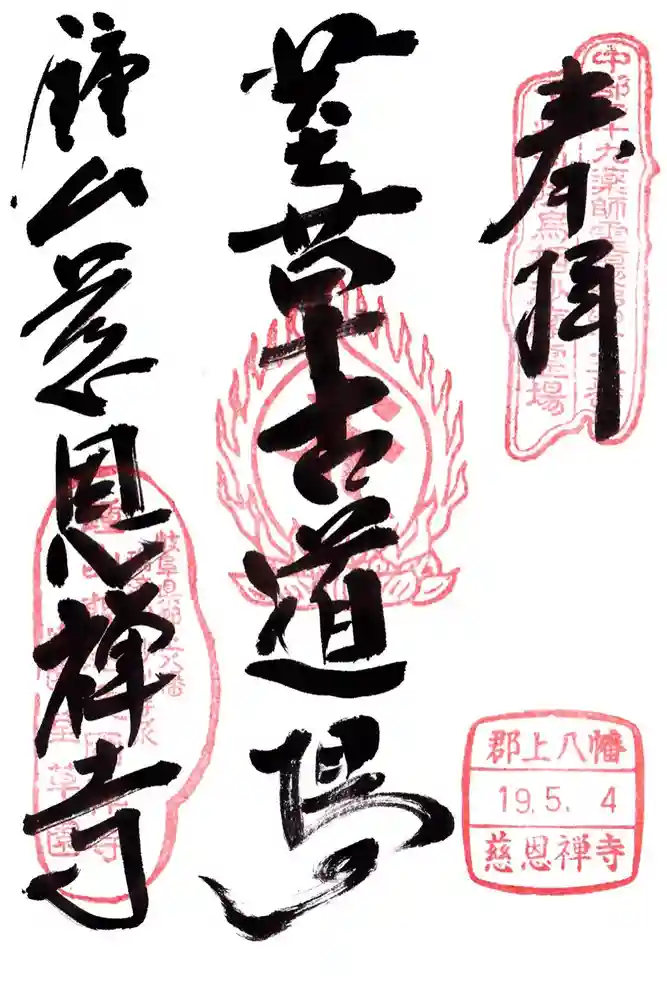 奉拝
中部四十九薬師霊場
郡上八幡
19.5.4
慈恩禅寺
荎草古道場
鐘山慈恩禅寺
岐阜県郡上八幡
荎草園